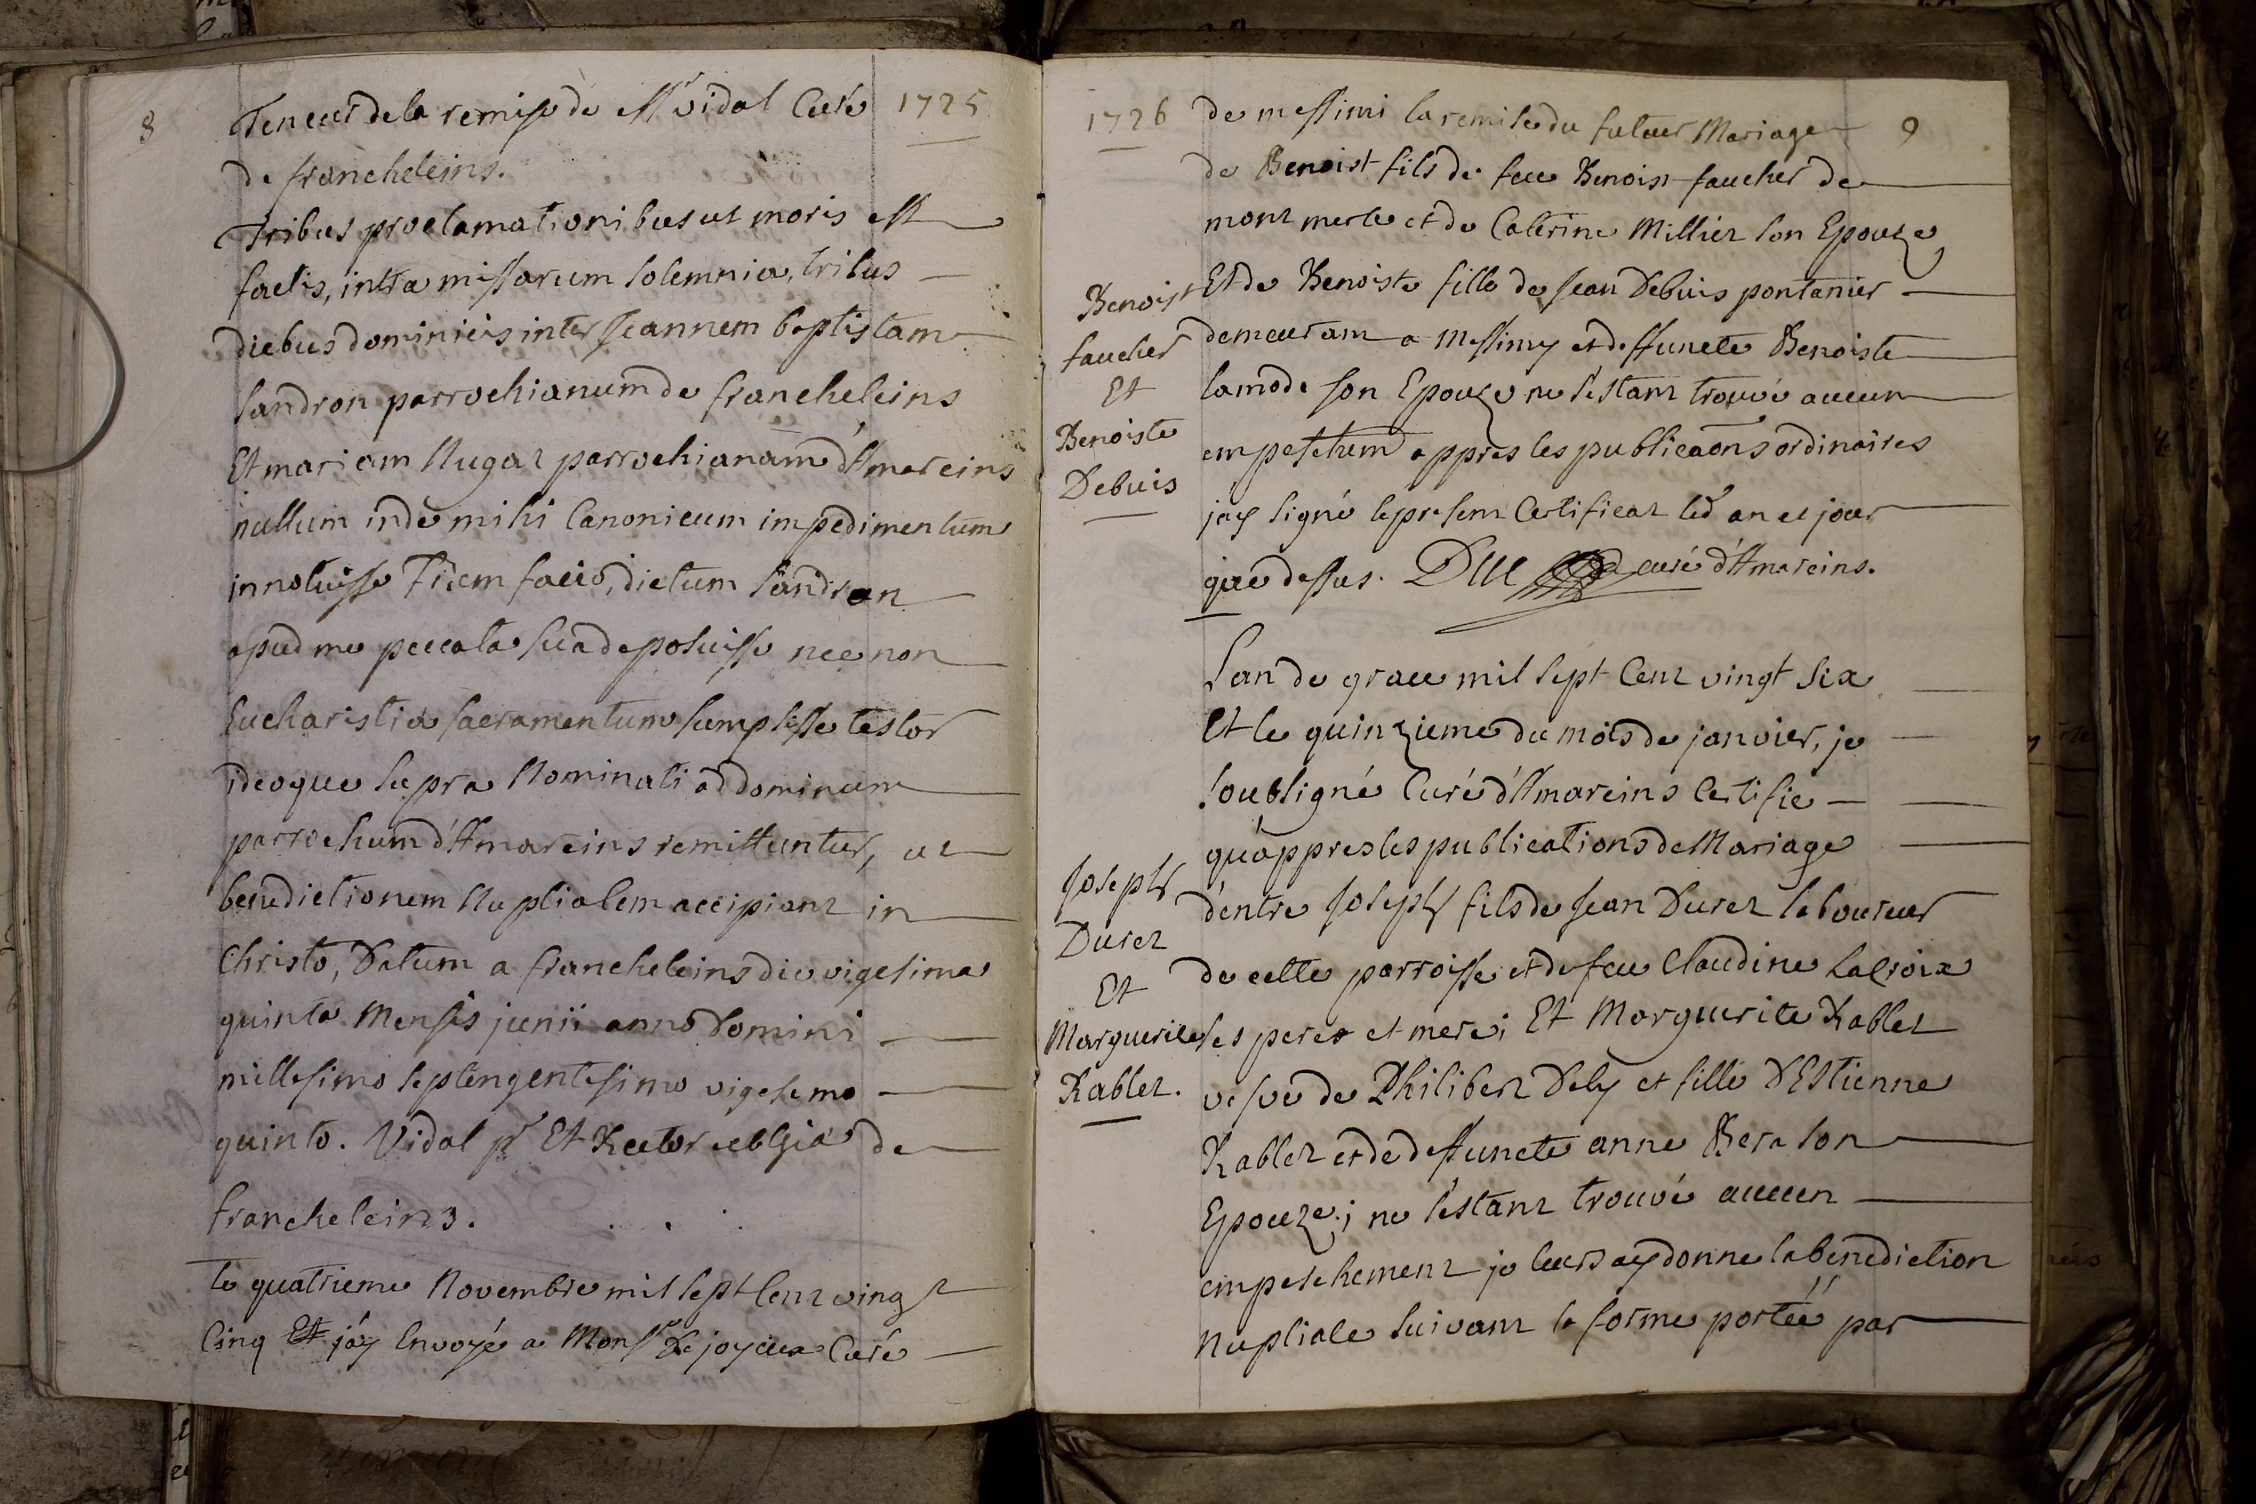 8
Teneur de la remise de Mr vidal Curé 1725
de francheleins.
Tribus proclamationibus ut moris est
factis, intra missarum solemnia, tribus
diebus dominicis inter Joannem baptistam
Sandron parrochianum de francheleins
Et mariam Nugaz parrochianam d'Amareins
nullum inde mihi Canonicum impedimentum
innotuisse Fidem facio, dictum Sandron
apud me peccata sua deposuisse nec non
Eucharistiæ sacramentum sumpsisse testor
ideoque supra Nominati ad dominum
parrochum d'Amareins remittuntur, ut
benedictionem Nuptialem accipiant in
Christo, Datum a francheleins die vigesima
quinta Mensis junii anno Domini
millesimo septengentesimo vigesimo
quinto. Vidal pr Et Rector ecclsiæ de
francheleins.
Le quatrieme Novembre mil sept Cent vingt
Cinq Et j'ay Envoyé a Monsr Dejoyeux Curé
1726
de messimi la remise du futeur Mariage 9
de Benoist fils de feu Benoist faucher de
montmerle et de Caterine Millier son Epouze,
Et de Benoiste fille de Jean Debuis pontanier
demeurant a Messimy et deffuncte Benoiste
lamode son Epouze ne s'estant trouvé aucun
empeschemt appres les publicaons ordinaires
j'ay signé le present Certificat led an et jour
que dessus. Duc curé d'Amareins.
Benoist
faucher
Et
Benoiste
Debuis
L'an de grace mil sept Cent vingt six
Et le quinzieme du mois de janvier, je
soubsigné Curé d'Amareins Certifie
qu'appres les publications de Mariage
d'entre Joseph fils de Jean Durez laboureur
de cette parroisse et de feu Claudine Lacroix
ses peres et mere; Et Marguerite Rablet
vesve de Philibert Dely et fille D'Estienne
Rablet et de deffuncte anne Bera son
Epouze; ne s'estant trouvé aucun
empeschement je leurs ay donne la benediction
Nuptiale suivant la forme portéé par
Joseph
Durez
Et
Marguerite
Rablet.